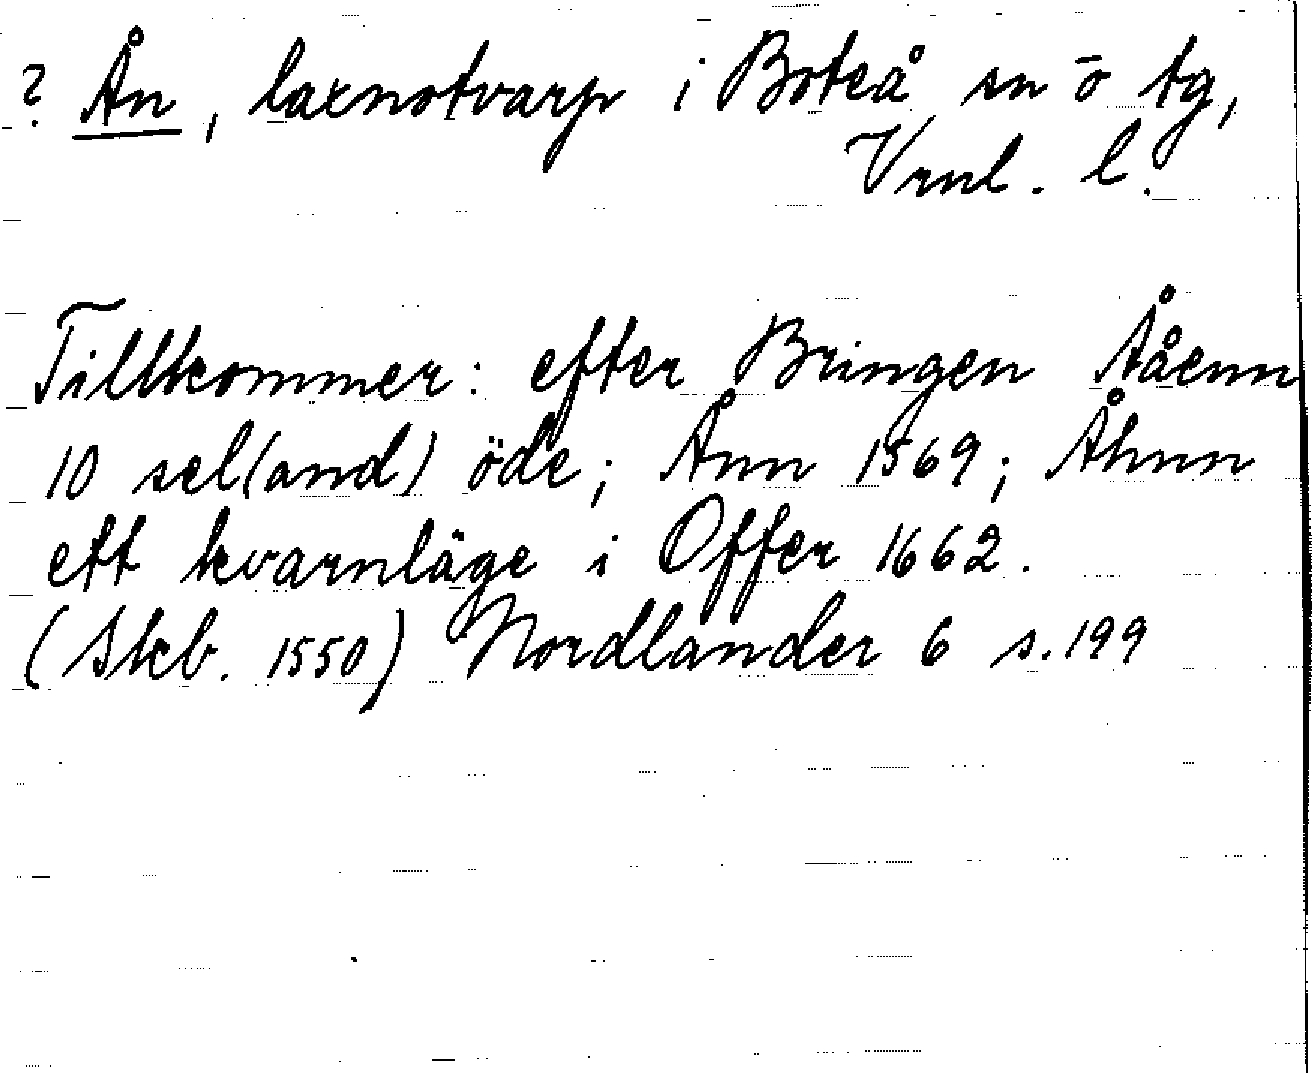 ? Ån, laxnotvarp i Boteå sn o tg,
Vrnl. l.
Tillkommer: efter Bringen Ååenn
10 sel(and) öde; Ånn 1569; Åhnn
ett kvarnläge i Offer 1662.
(Skb. 1550) Nordlander 6 s. 199